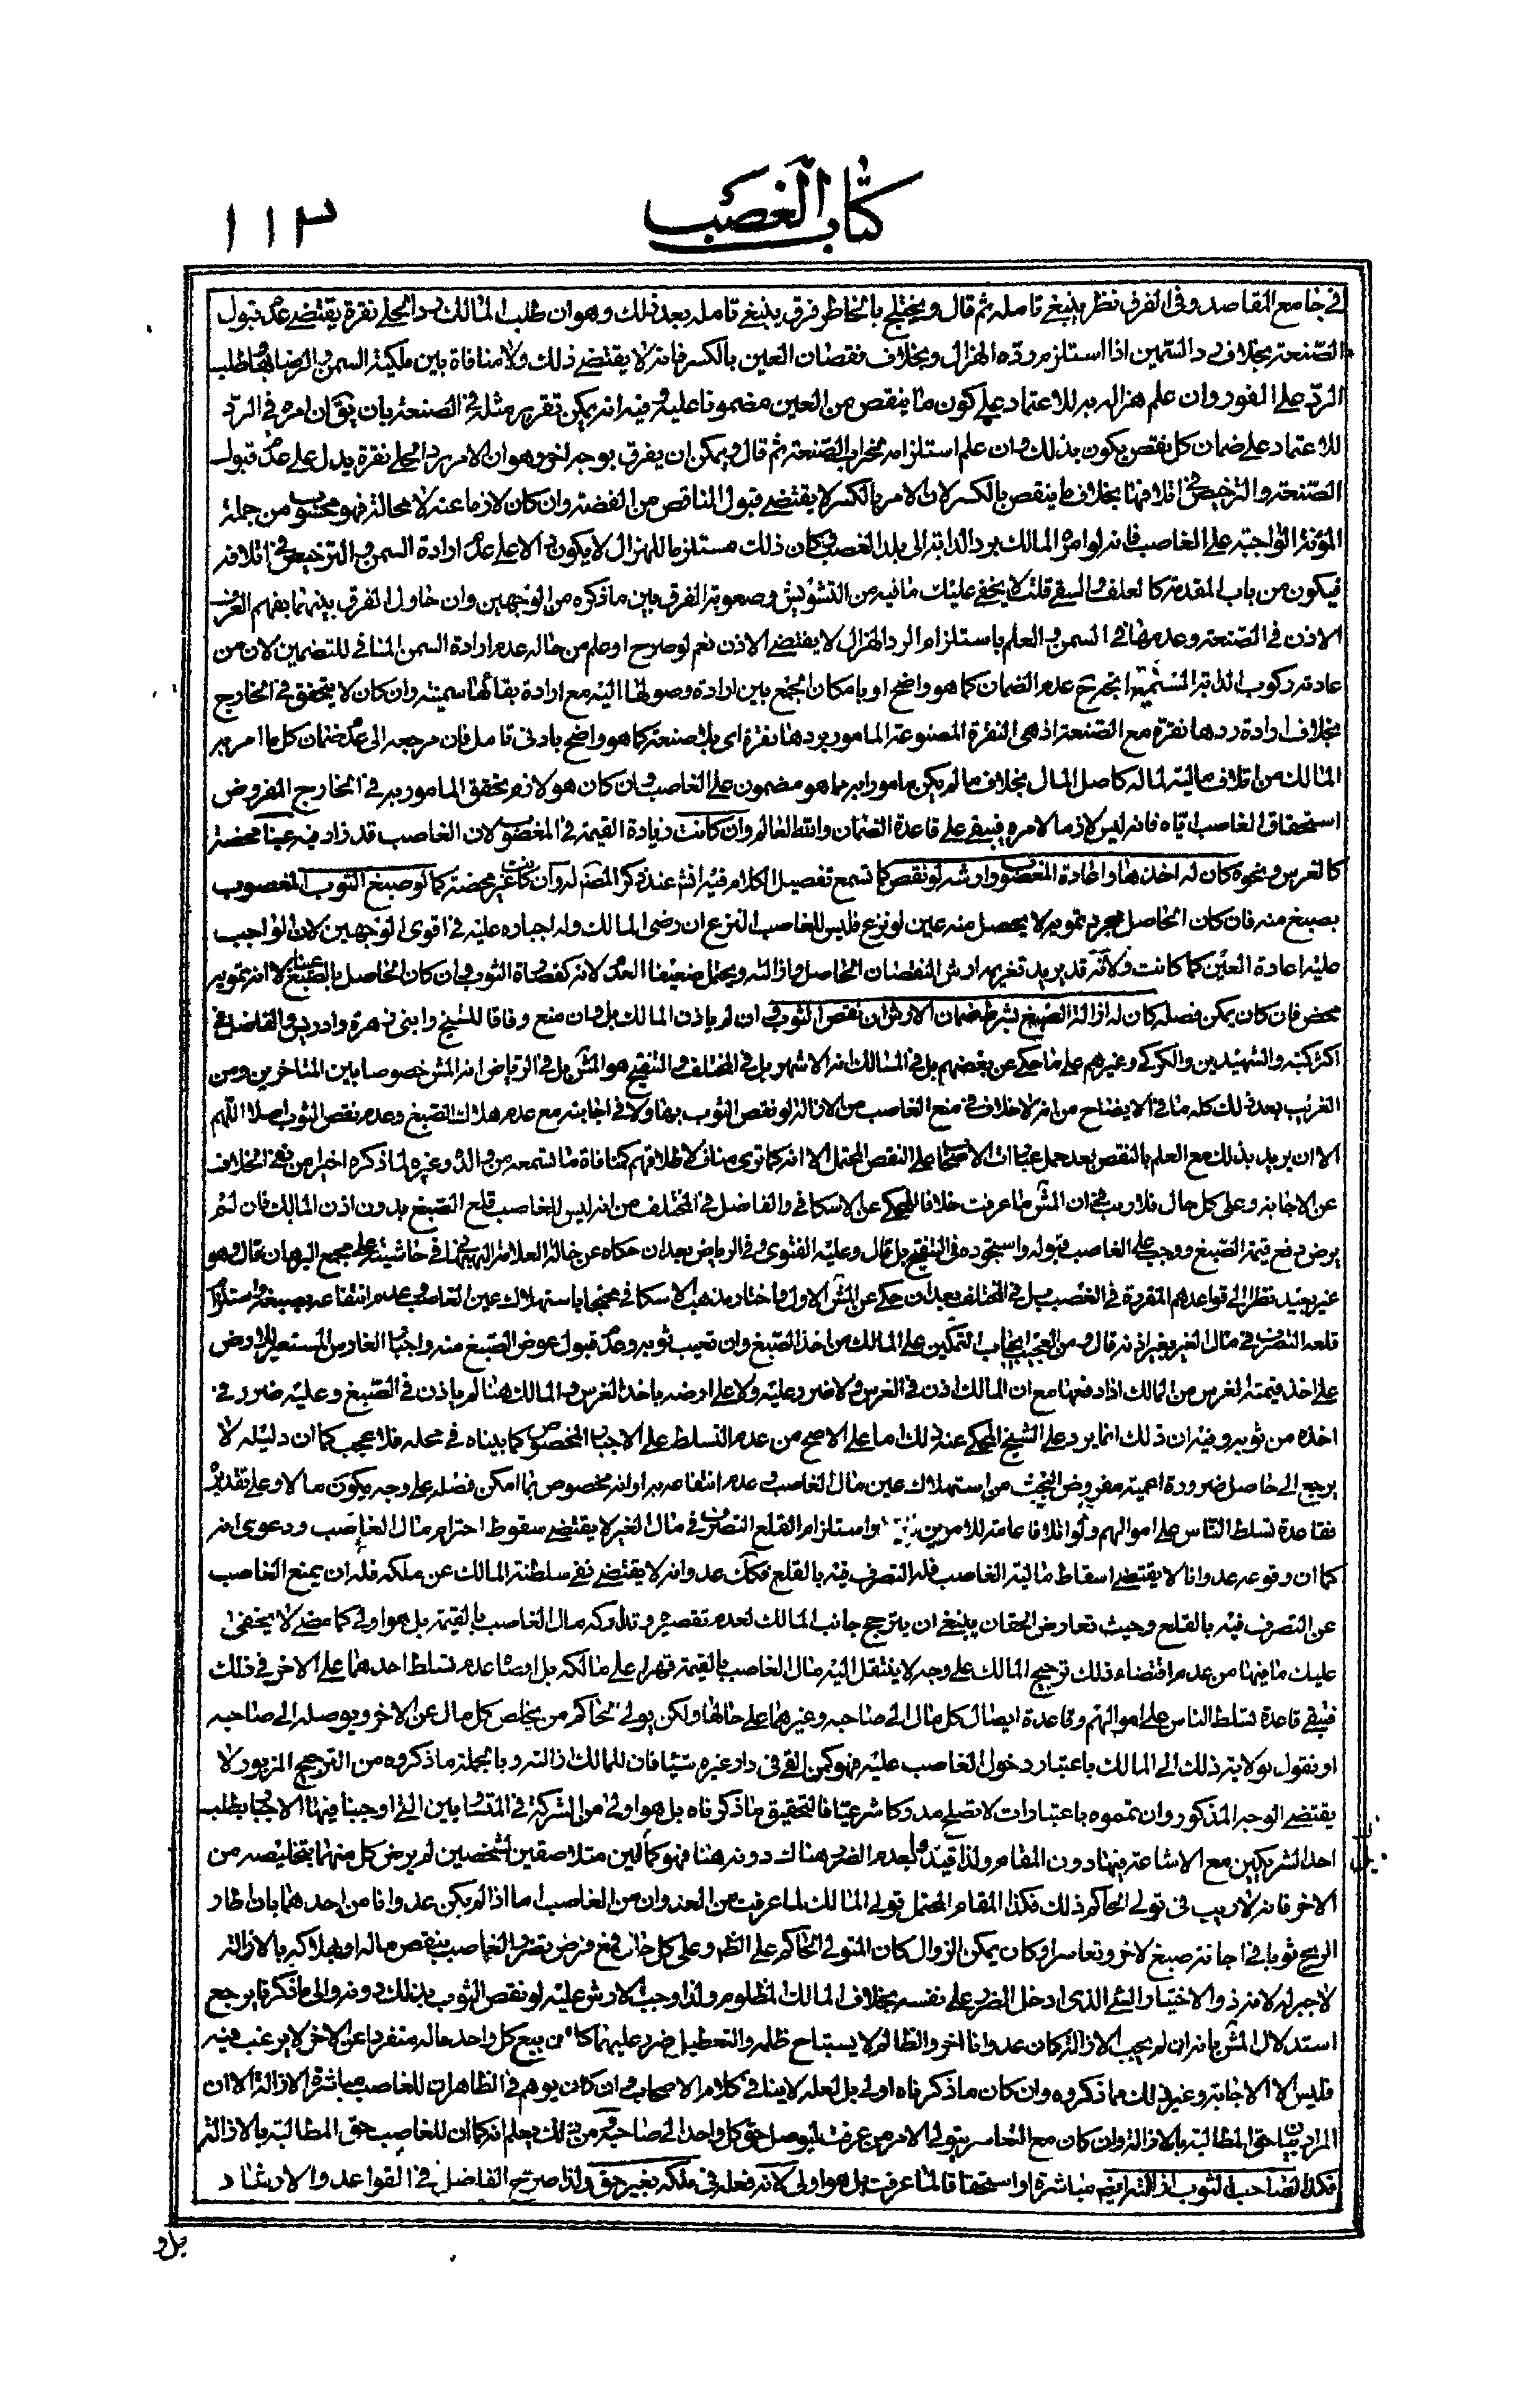 كتاب الغصب
١١٣
في جامع المقاصد وفي الفرق نظر ينبغي تامله ثم قال ويختلج بالخاطر فرق ينبغي تامله بعد ذلك وهو ان طلب المالك رد الحلي نقرة يقتضي عدم قبول
الصنعة بخلاف رد السمين اذا استلزم رده الهزال وبخلاف نقصان العين بالكسر فانه لا يقتضي ذلك ولا منافاة بين ملكية السمن والرضا بها وطلب
الرد على الفور وان علم هزاله به للاعتماد على كون ما ينقص من العين مضمونا عليه وفيه انه يمكن تقرير مثله في الصنعة بان يقال ان امره في الرد
للاعتماد على ضمان كل نقص يكون بذلك وان علم استلزامه خراب الصنعة ثم قال ويمكن ان يفرق بوجه اخر وهو ان الامر برد الحلي نقرة يدل على عدم قبول
الصنعة والترخيص في اتلافها بخلاف ما ينقص بالكسر لان الامر بالكسر لا يقتضي قبول الناقص من الفضة وان كان لازما عنه لا محالة فهو محسوب من جملة
المؤنة الواجبة على الغاصب فانه لو امره المالك برد الدابة الى بلد الغصب وكان ذلك مستلزما للهزال لا يكون الا على عدم ارادة السمن والترخيص في اتلافه
فيكون من باب المقدمة كالعلف والسقي قلت لا يخفى عليك ما فيه من التشويش وصعوبة الفرق بين ما ذكره من الوجهين وان حاول الفرق بينهما بفهم العرف
الاذن في الصنعة وعدمها في السمن والعلم باستلزام الرد الهزال لا يقتضي الاذن نعم لو صرح او علم من حاله عدم ارادة السمن المنافي للتضمين لان من
عادته ركوب الدابة اتجه عدم الضمان كما هو واضح او بامكان الجمع بين ارادة وصولها اليه مع ارادة بقائها سمينة وان كان لا يتحقق في الخارج
بخلاف ارادة ردها نقرة مع الصنعة اذ هي النقرة المصنوعة المامور بردها نقرة اي بلا صنعة كما هو واضح بادنى تامل فان مرجعه الى عدم ضمان كل ما امر به
المالك من اتلاف مالية لماله كاصل المال بخلاف ما لم يكن مامورا به مما هو مضمون على الغاصب وان كان هو لازم تحقق المامور به في الخارج المفروض
استحقاق الغاصب اياه فانه ليس لازما لامره فيبقى على قاعدة الضمان والله العالم وان كانت زيادة القيمة في المغصوب لان الغاصب قد زاد فيه عينا محضة
كالغرس ونحوه كان له اخذها واعادة المغصوب وارشه لو نقص كما تسمع تفصيل الكلام فيه انش عند ذكر المصنف له وان كانت غير محضة كما لو صبغ الثوب المغصوب
بصبغ منه فان كان الحاصل مجرد تمويه لا يحصل منه عين لو نزع فليس للغاصب النزع ان رضي المالك وله اجباره عليه في اقوى الوجهين لان الواجب
عليه اعادة العين كما كانت ولانه قد يريد تغريمه ارش النقصان الحاصل بازالته ويحتمل ضعيفا العدم لانه كقصارة الثوب وان كان الحاصل بالصبغ عينا لا انه تمويه
محض فان كان يمكن فصله كان له ازالة الصبغ بشرط ضمان الارش ان نقص الثوب وان لم ياذن المالك بل وان منع وفاقا للشيخ وابني زهرة وادريس والفاضل في
اكثر كتبه والشهيدين والكركي وغيرهم على ما حكي عن بعضهم بل في المسالك انه الاشهر بل في المختلف والتنقيح هو المش بل في الرياض انه المش خصوصا بين المتاخرين ومن
الغريب بعد ذلك كله ما في الايضاح من انه لا خلاف في منع الغاصب من الازالة لو نقص الثوب بها ولا في اجابته مع عدم هلاك الصبغ وعدم نقص الثوب اصلا اللهم
الا ان يريد بذلك مع العلم بالنقص بعد حمل عبارات الاصحاب على النقص المحتمل الا انه كما ترى مناف لاطلاقهم كمنافاة ما ستمعه من والده وغيره لما ذكره اخيرا من نفي الخلاف
عن الاجابة وعلى كل حال فلا ريب في ان المش ما عرفت خلافا للمحكي عن الاسكافي والفاضل في المختلف من انه ليس للغاصب قلع الصبغ بدون اذن المالك فان لم
يرض دفع قيمة الصبغ ووجب على الغاصب قبوله واستجوده في التنقيح بل قال وعليه الفتوى وفي الرياض بعد ان حكاه عن خاله العلامة البهبهاني في حاشيته على مجمع البرهان قال وهو
غير بعيد نظرا الى قواعدهم المقررة في الغصب بل في المختلف بعد ان حكى عن المش الاول واختار مذهب الاسكافي محتجا باستهلاك عين الغاصب وعدم انتفاعه بصبغه واستلزام
قلعه التصرف في مال الغير بغير اذنه قال ومن العجيب ايجاب التمكين على المالك من اخذ الصبغ وان تعيب ثوبه وعدم قبول عوض الصبغ منه واجبار الغارس المستعير للارض
على اخذ قيمة الغرس من المالك اذا دفعها مع ان المالك اذن في الغرس ولا ضرر عليه ولا على ارضه باخذ الغرس والمالك هنا لم ياذن في الصبغ وعليه ضرر في
اخذه من ثوبه وفيه ان ذلك انما يرد على الشيخ المحكي عنه ذلك ما على الاصح من عدم التسلط على الاجبار المخصوص كما بيناه في محله فلا عجب كما ان دليله لا
يرجع الى حاصل ضرورة اهمية مفروض البحث من استهلاك عين مال الغاصب وعدم انتفاعه به او انه مخصوص بما امكن فصله على وجه يكون مالا وعلى تقديره
فقاعدة تسلط الناس على اموالهم ولو اتلافا عامة للامرين واستلزام القلع التصرف في مال الغير لا يقتضي سقوط احترام مال الغاصب ودعوى انه
كما ان وقوعه عدوانا لا يقتضي اسقاط مالية الغاصب فله التصرف فيه بالقلع فكك عدوانه لا يقتضي نفي سلطنة المالك عن ملكه فله ان يمنع الغاصب
عن التصرف فيه بالقلع وحيث تعارض الحقان ينبغي ان يترجح جانب المالك لعدم تقصيره وتدارك مال الغاصب بالقيمة بل هو اولى كما مضى لا يخفى
عليك ما فيها من عدم اقتضاء ذلك ترجيح المالك على وجه لا ينتقل اليه مال الغاصب بالقيمة قهرا على مالكه بل اقصاه عدم تسلط احدهما على الاخر في ذلك
فتبقى قاعدة تسلط الناس على اموالهم وقاعدة ايصال كل مال الى صاحبه وغيرهما على حالها ولكن يولي الحاكم من يخلص كل مال عن الاخر ويوصله الى صاحبه
او نقول بولاية ذلك الى المالك باعتبار دخول الغاصب عليه فهو كمن القى في دار غيره شيئا فان للمالك ازالته وبالجملة ما ذكروه من الترجيح المزبور لا
يقتضي الوجه المذكور وان تمموه باعتبارات لا تصلح مدركا شرعيا فالتحقيق ما ذكرناه بل هو اولى من الشركة في المتشابين التي اوجبنا فيها الاجبار بطلب
احد الشريكين مع الاشاعة فيها دون المقام ولذا قيدناه بعدم الضرر هناك دونه هنا فهو كمالين متلاصقين لشخصين لم يرض كل منهما بتخليصه من
الاخر فانه لا ريب في تولي الحاكم ذلك فكذا المقام المحتمل تولي المالك لما عرفت من العدوان من الغاصب اما اذا لم يكن عدوانا من احدهما بان طار
الريح ثوبا في اجانة صبغ لاخر وتعاسرا وكان يمكن الزوال كان المتولي الحاكم على الظ وعلى كل حال ففي فرض تضرر الغاصب بنقص ماله او بهلاكه بالازالة
لا جبر له لانه ذو الاختيار والشي الذي ادخل الضرر على نفسه بخلاف المالك المظلوم ولذا وجب الارش عليه لو نقص الثوب بذلك دونه والى ما ذكرنا يرجع
استدلال المش بانه ان لم يجب الازالة كان عدوانا اخر والظالم لا يستباح ظلمه والتعطيل ضرر عليهما كما من بيع كل واحد ماله منفردا عن الاخر لا يرغب فيه
فليس الا الاجابة وغير ذلك مما ذكروه وان كان ما ذكرناه اولى بل لعله لا ينافي كلام الاصحاب وان كان يوهم في الظاهر ان للغاصب مباشرة الازالة الا ان
المراد بيان حق المطالبة بالازالة وان كان مع التعاسر يتولى الامر من عرفت ليوصل حق كل واحد الى صاحبه ومن ذلك يعلم انه كما ان للغاصب حق المطالبة بالازالة
فكذا لصاحب الثوب ازالته ايضا مباشرة او استحقاقا لما عرفت بل هو اولى لانه فعله في ملكه بغير حق ولذا صرح الفاضل في القواعد والارشاد
بل و